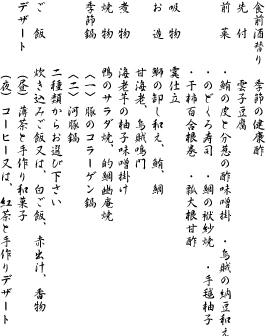 食前酒替り 季節の健康酢
先付 雲子豆腐
前菜 ・鮪の皮と分葱の酢味噌掛 ・烏賊の納豆和え
・のどくろ寿司 ・鯛の袱紗焼 ・手毬柚子
・干柿百合根巻 ・紅大根甘酢
吸物 霙仕立
お造 鰤の卸し和え、鮪、鯛
甘海老、烏賊鳴門
煮物 海老芋の柚子味噌掛け
焼物 鴨のサラダ焼、的鯛幽庵焼
季節鍋 〈一〉豚のコラーゲン鍋
〈二〉河豚鍋
二種類からお選び下さい
ご飯 炊き込みご飯又は、白ご飯、赤出汁、香物
デザート (昼) 薄茶と手作り和菓子
(夜) コーヒー又は、紅茶と手作りデザート